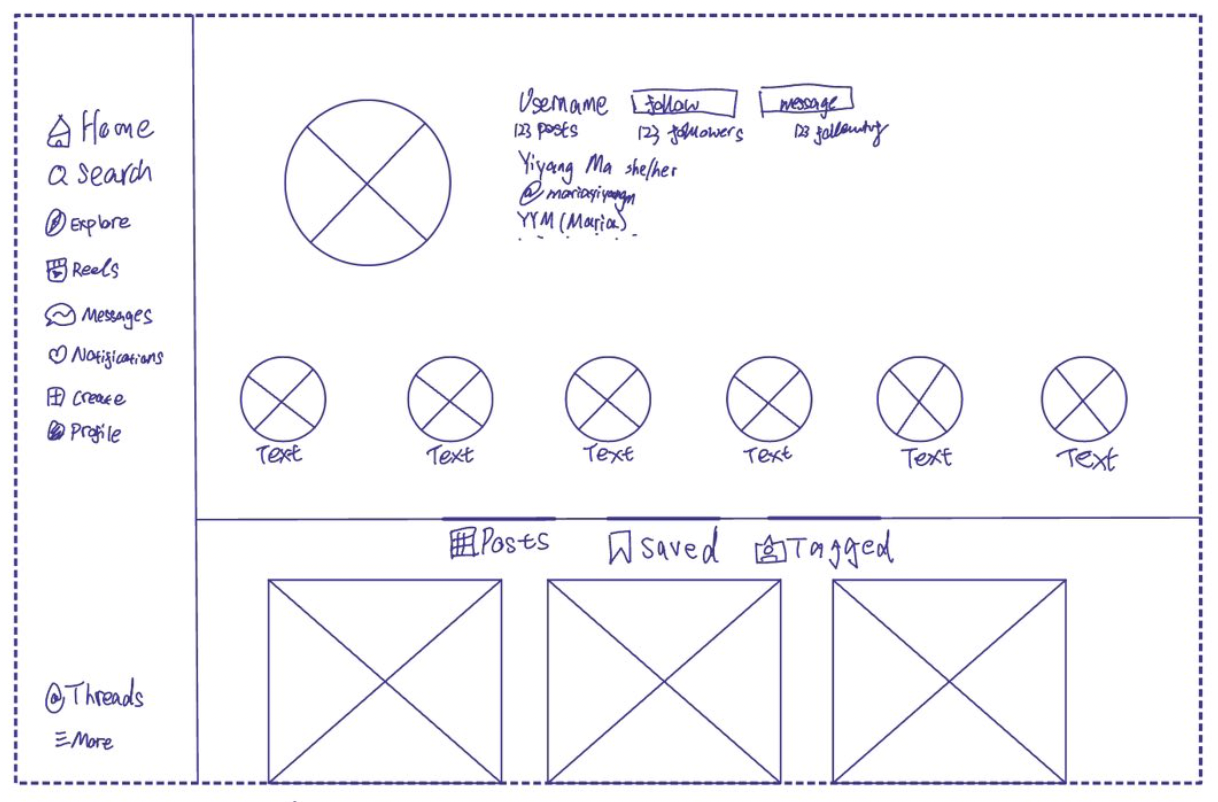 Home
Search
Explore
Reels
Messages
Notifications
Create
Profile
Threads
More
Username follow message
123 posts 123 followers 123 following
Yiyang Ma she/her
@mariayiyangm
YYM (Maria)
Text Text Text Text Text Text
Posts Saved Tagged